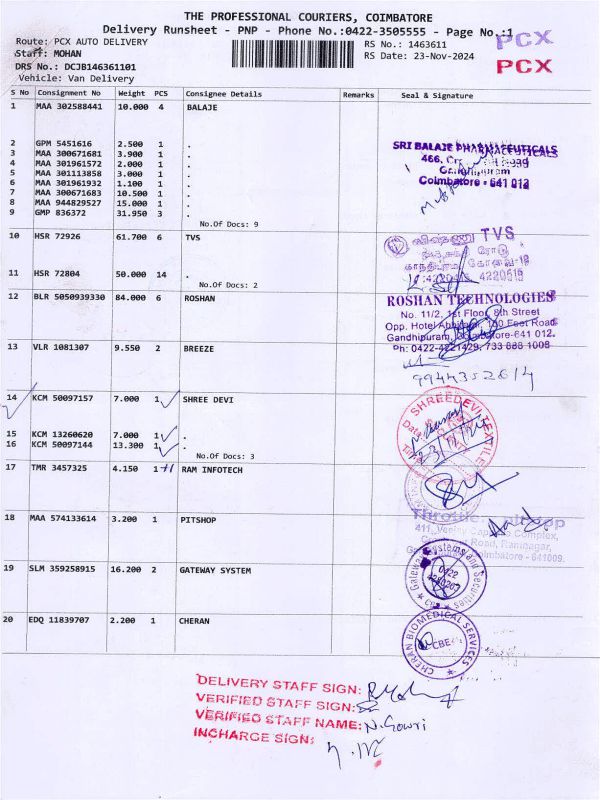 THE PROFESSIONAL COURIERS, COIMBATORE
Delivery Runsheet - PNP - Phone No.:0422-3505555 - Page No.:1
Route: PCX AUTO DELIVERY
RS No.: 1463611
PCX
Staff: MOHAN
RS Date: 23-Nov-2024
PCX
DRS No.: DCJB146361101
Vehicle: Van Delivery
S No Consignment No Weight PCS Consignee Details Remarks Seal & Signature
1 MAA 302588441 10.000 4 BALAJE
2 GPM 5451616 2.500 1 .
3 MAA 300671681 3.900 1 .
4 MAA 301961572 2.000 1 .
5 MAA 301113858 3.000 1 .
6 MAA 301961932 1.100 1 .
7 MAA 300671683 10.500 1 .
8 MAA 944829527 15.000 1 .
9 GMP 836372 31.950 3 .
No.Of Docs: 9
SRI BALAJE PHARMACEUTICALS
466, Road
Gandhipuram
Coimbatore - 641 012
10 HSR 72926 61.700 6 TVS
TVS
4220616
11 HSR 72804 50.000 14 .
No.Of Docs: 2
12 BLR 5050939330 84.000 6 ROSHAN
ROSHAN TECHNOLOGIES
No. 11/2, 1st Floor, 8th Street
Opp. Hotel 100 Feet Road
Gandhipuram, Coimbatore-641 012.
Ph: 0422-4221429, 733 888 1008
13 VLR 1081307 9.550 2 BREEZE
9944352614
14 KCM 50097157 7.000 1 SHREE DEVI
15 KCM 13260620 7.000 1 .
16 KCM 50097144 13.300 1 .
No.Of Docs: 3
SHREEDEVI TEXTILE
Date
23/11/24
17 TMR 3457325 4.150 1 RAM INFOTECH
18 MAA 574133614 3.200 1 PITSHOP
Throttle
411, Complex,
Road, Ramnagar,
Coimbatore - 641009.
19 SLM 359258915 16.200 2 GATEWAY SYSTEM
Gateway Systems and Securities
0422
20 EDQ 11839707 2.200 1 CHERAN
CHERAN BIOMEDICAL SERVICES
CBE
DELIVERY STAFF SIGN:
VERIFIED STAFF SIGN:
VERIFIED STAFF NAME: N. Gowri
INCHARGE SIGN: